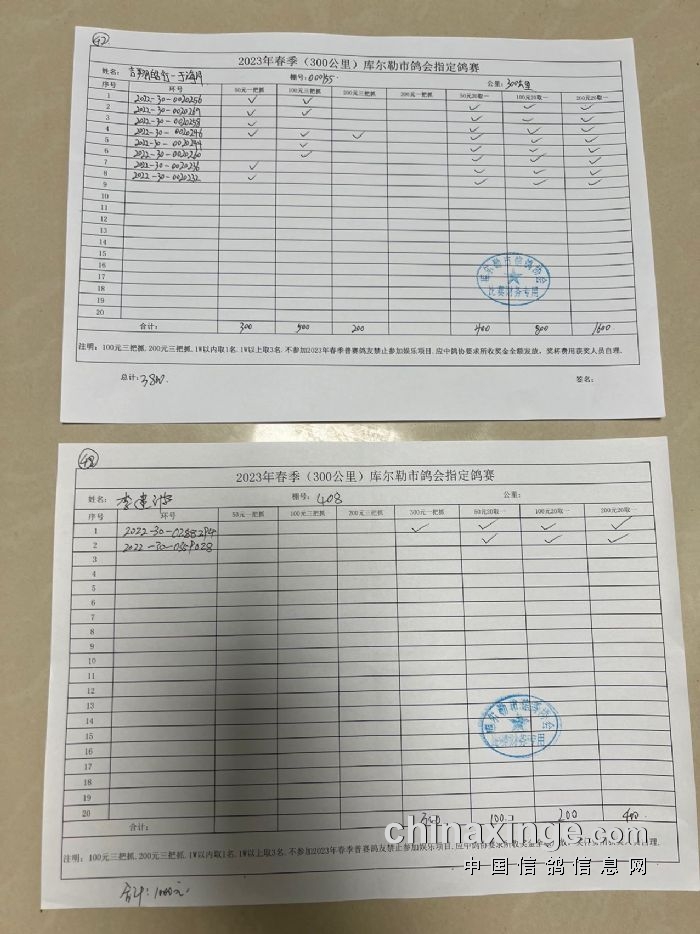 42
2023年春季（300公里）库尔勒市鸽会指定鸽赛
姓名： 棚号：000155. 公里：300公里
序号 环号 50元一把抓 100元三把抓 200元三把抓 300元一把抓 50元20取一 100元20取一 200元20取一
1 2022-30-0020256 ✓ ✓ ✓ ✓ ✓
2 2022-30-0020269 ✓ ✓ ✓ ✓ ✓
3 2022-30-0020258 ✓ ✓ ✓ ✓
4 2022-30-0020246 ✓ ✓ ✓ ✓ ✓ ✓
5 2022-30-0020244 ✓ ✓ ✓ ✓
6 2022-30-0020260 ✓ ✓ ✓ ✓
7 2022-30-0020236 ✓ ✓ ✓ ✓
8 2022-30-0020232 ✓ ✓ ✓ ✓
9 ✓ ✓ ✓
10
11
12
13
14
15
16
17
18
19
20
库尔勒市信鸽协会
比赛财务专用
合计： 300 500 200 400 800 1600
注明：100元三把抓.200元三把抓.1W以内取1名.1W以上取3名.不参加2023年春季普赛鸽友禁止参加娱乐项目.应中鸽协要求所收奖金全额发放，奖杯费用获奖人员自理.
总计：3800. 签名：
2023年春季（300公里）库尔勒市鸽会指定鸽赛
姓名： 棚号：408 公里：
序号 环号 50元一把抓 100元三把抓 200元三把抓 300元一把抓 50元20取一 100元20取一 200元20取一
1 2022-30-0288294 ✓ ✓ ✓ ✓
2 2022-30-0559028 ✓ ✓ ✓
3
4
5
6
7
8
9
10
11
12
13
14
15
16
17
18
19
20
比赛财务专用
合计： 300 100 200 400
注明：100元三把抓.200元三把抓.1W以内取1名.1W以上取3名.不参加2023年春季普赛鸽友禁止参加娱乐项目.应中鸽协要求所收奖金全
合计：1000元.
chinaxinge.com
中国信鸽信息网